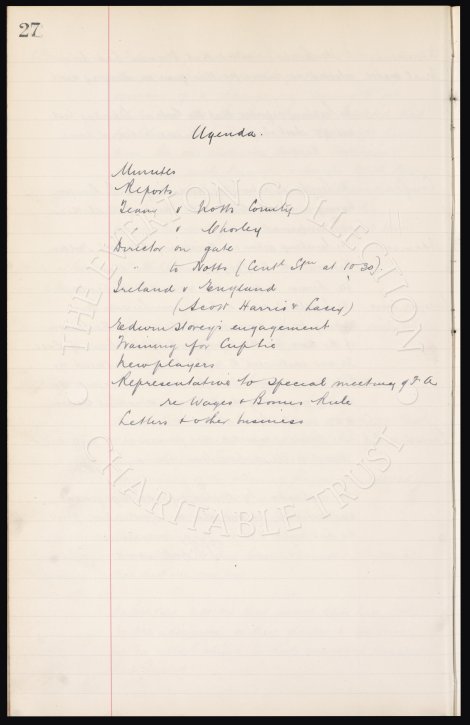 27
Agenda.
Minutes
Reports
Team v Notts County
v Chorley
Director on gate
" to Notts (Centl Stn at 10-30).
Ireland v England
(Scott Harris & Lacey)
Edwin Storey's engagement
Training for Cuptie
New players
Representative to special meeting of F.A
re Wages & Bonus Rule
Letters & other business
THE EVERTON COLLECTION
CHARITABLE TRUST